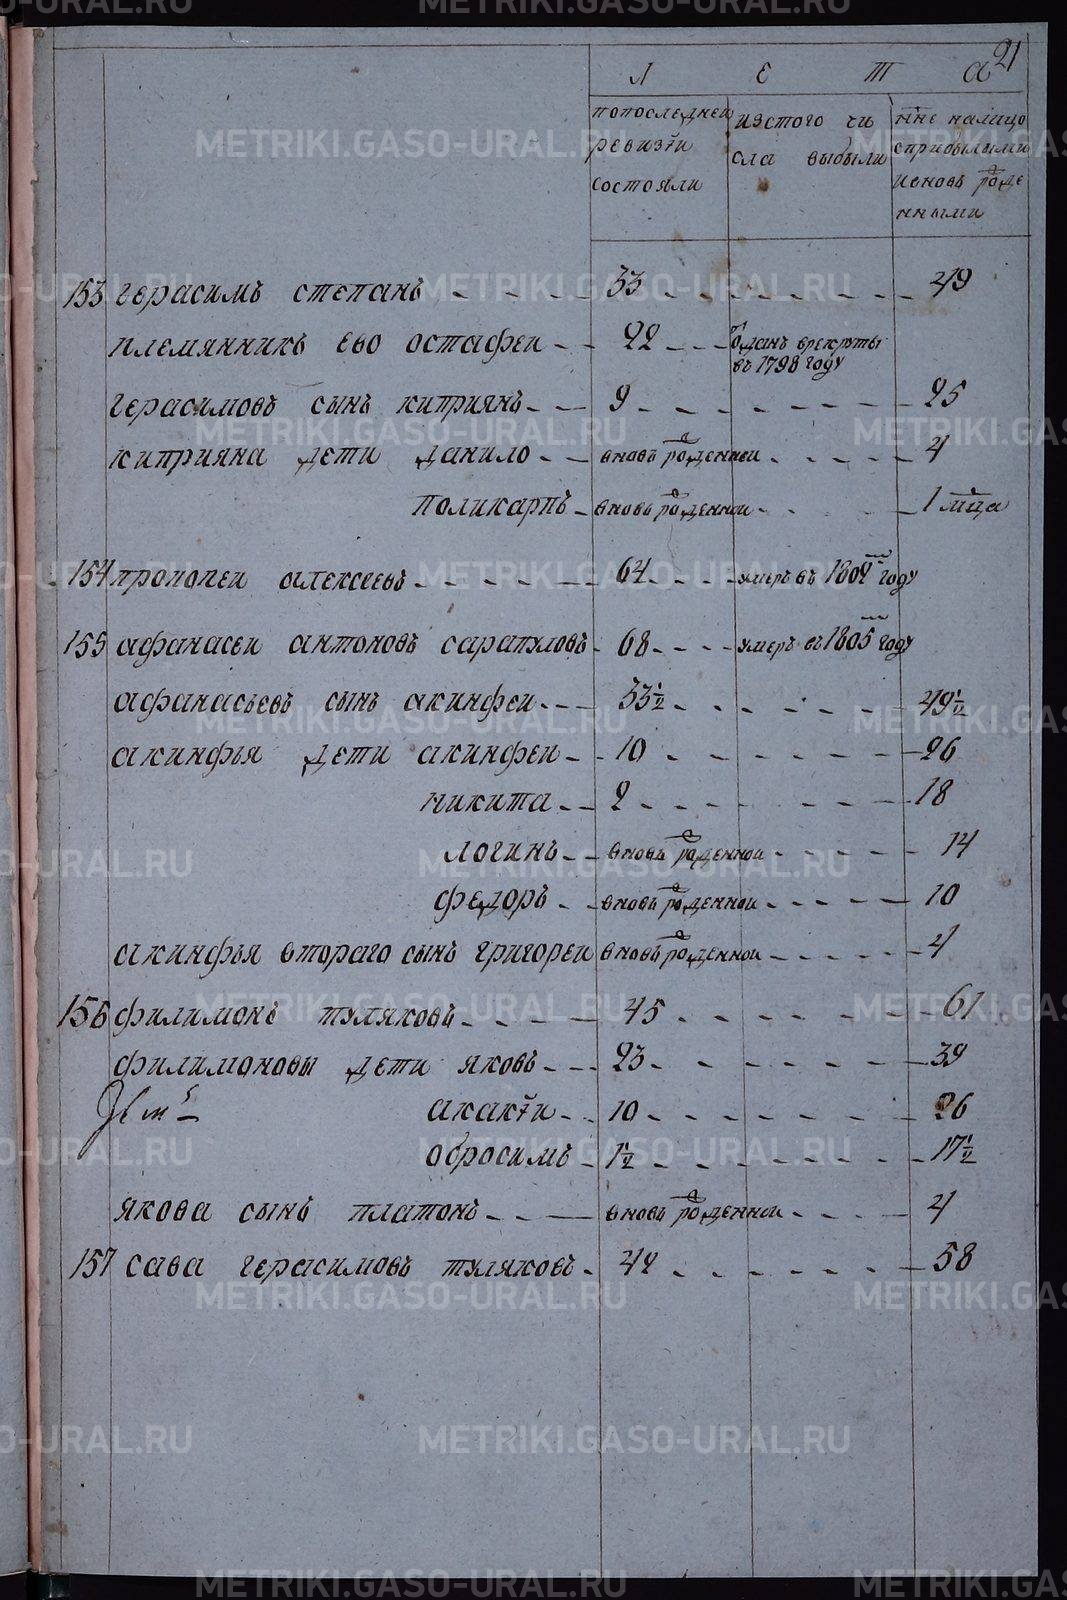 21
Л Е Т а
попоследней изстого чи нне налицо
ревизѣи сла выбыли сприбылыми
состояли ивновь роде
нными
153 герасимъ степанъ 33 49
племянникъ ево остафеи 22 одданъ врекруты
въ 1798 году
герасимовъ сынъ киприянъ 9 25
киприяна дети данило вновь роденнои 4
поликарпъ вновь роденнои 1 мца
154 прокопеи алексеевъ 64 умеръ въ 1802м году
155 афанасеи антоновъ сарапуловъ 68 умеръ въ 1805м году
афанасьевъ сынъ акинфеи 33½ 49½
акинфья дети акинфеи 10 26
никита 2 18
логинъ вновь роденнои 14
федоръ вновь роденнои 10
акинфья втораго сынъ григореи вновь роденнои 4
156 филимонъ туляковъ 45 61
филимоновы дети яковъ 23 39
акакѣи 10 26
обросимъ 1½ 17½
якова сынъ платонъ вновь роденнои 4
157 сава герасимовъ туляковъ 42 58
METRIKI.GASO-URAL.RU